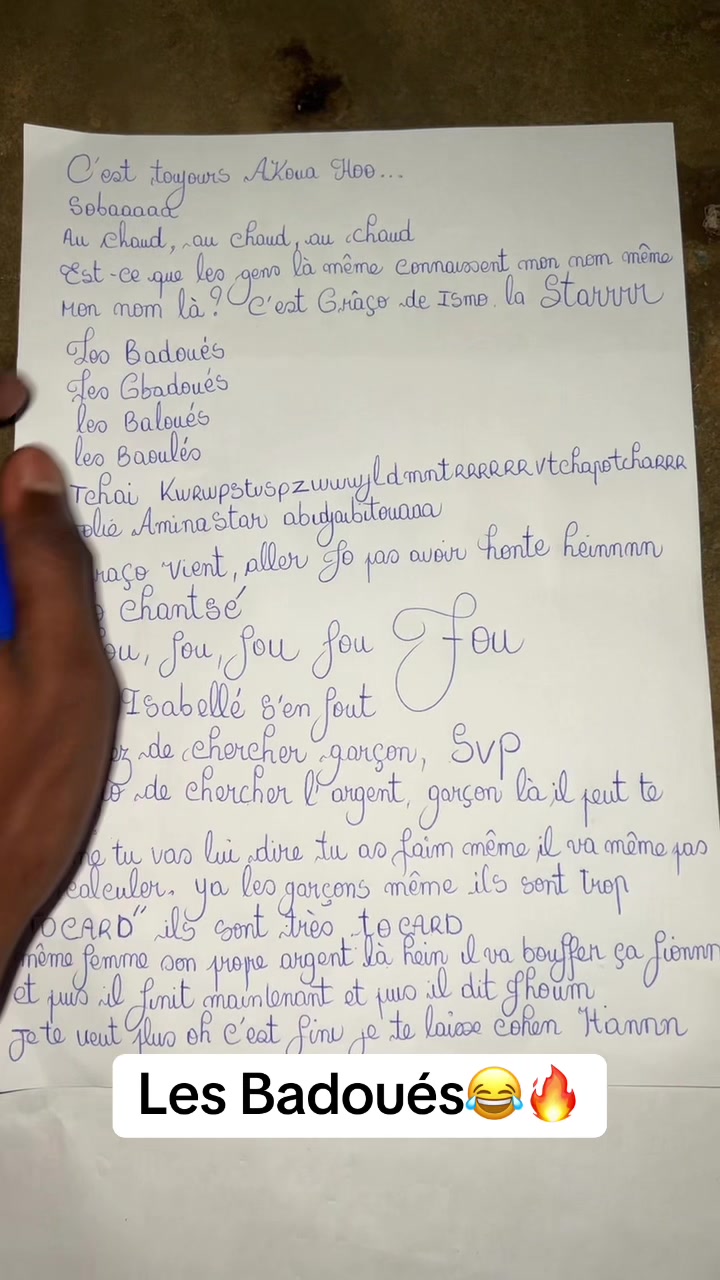 C'est toujours AKoua Hoo...
Sobaaaad
Au chaud, au chaud, au chaud
Est-ce que les gens là même connaissent mon nom même
Mon nom là? C'est Grâço de Ismo la Starrrr
Les Badoués
Les Gbadoués
les Baloués
les Baoulés
Tchai RRRRRR
Amina Star
vient, aller Jo pas avoir honte heinnnn
chantsé
ou, fou, fou fou Fou
Isabellé s'en fout
ez de chercher garçon, SVP
de chercher l'argent, garçon là il peut te
tu vas lui dire tu as faim même il va même pas
calculer. ya les garçons même ils sont trop
OCARD" ils sont très toCARD
même femme son prope argent là hein il va bouffer ça
et puis il finit maintenant et puis il dit ghoum
Je te veut plus oh c'est fini je te laisse cohen Hannnn
Les Badoués😂🔥